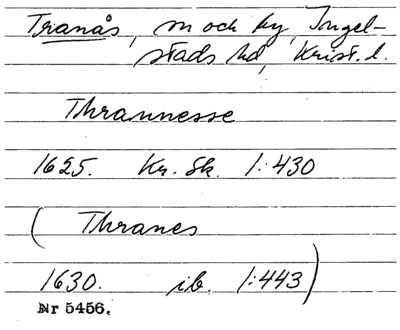 Tranås, sn och by, Ingel-
stads hd, Krist. l.
Thrannesse
1625. Kr. Sk. 1:430
(Thranes
1630. ib. 1:443)
Nr 5456.